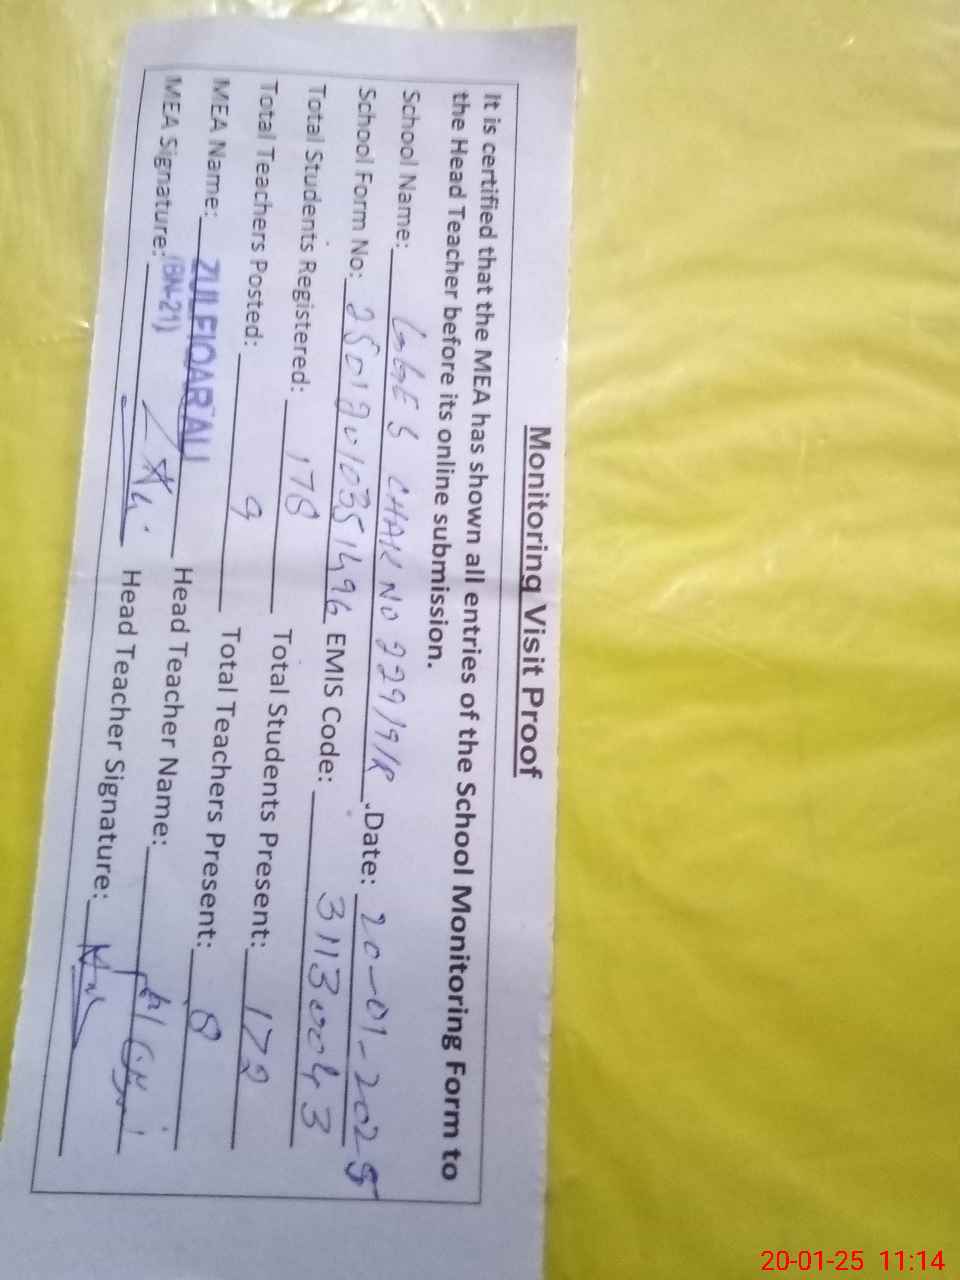 Monitoring Visit Proof
It is certified that the MEA has shown all entries of the School Monitoring Form to
the Head Teacher before its online submission.
School Name: GGES CHAK NO 229/9/R .Date: 20-01-2025
School Form No: 25012010351496 EMIS Code: 31130043
Total Students Registered: 178 Total Students Present: 172
Total Teachers Posted: 9 Total Teachers Present: 8
MEA Name: ZULFIQAR ALI Head Teacher Name:
(BN-21)
MEA Signature: Ali Head Teacher Signature:
20-01-25 11:14